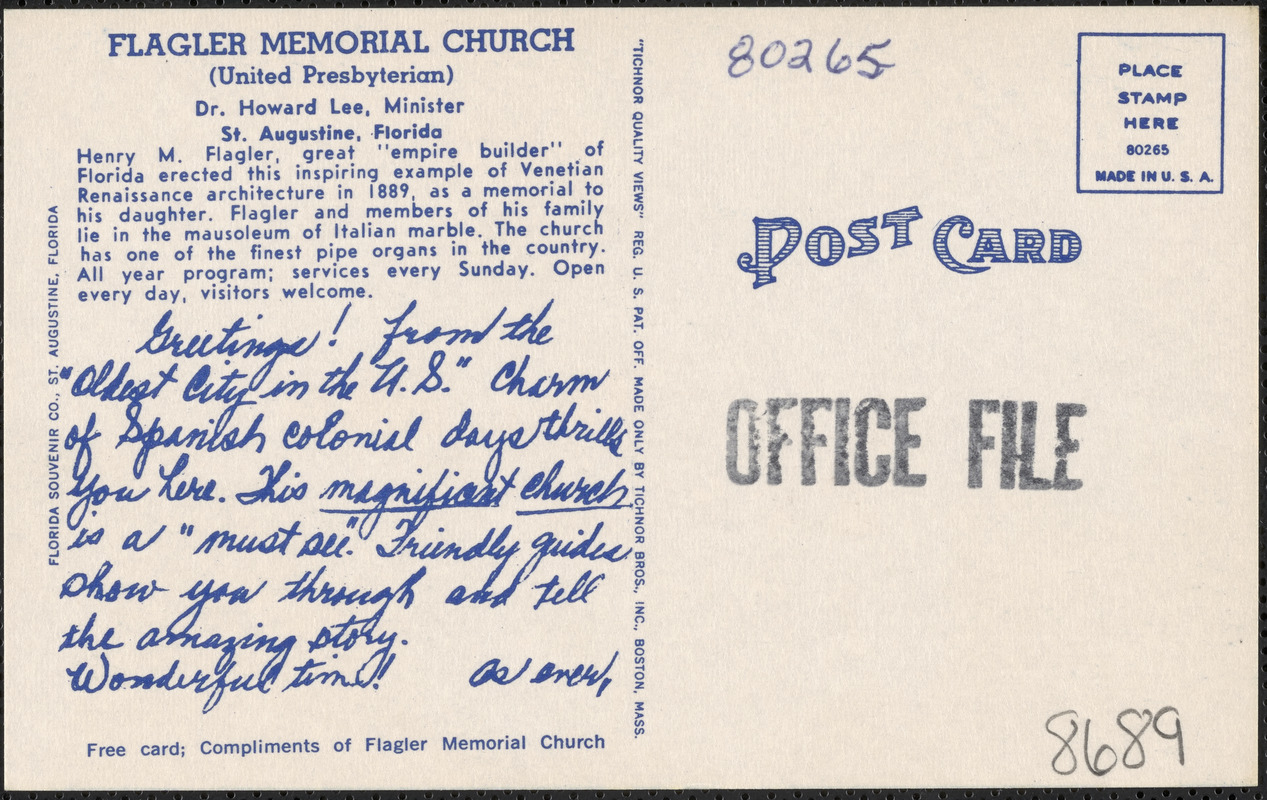 FLAGLER MEMORIAL CHURCH
(United Presbyterian)
Dr. Howard Lee, Minister
St. Augustine, Florida
Henry M. Flagler, great "empire builder" of
Florida erected this inspiring example of Venetian
Renaissance architecture in 1889, as a memorial to
his daughter. Flagler and members of his family
lie in the mausoleum of Italian marble. The church
has one of the finest pipe organs in the country.
All year program; services every Sunday. Open
every day, visitors welcome.
Greetings! from the
"Oldest City in the U.S." Charm
of Spanish colonial days thrills
you here. This magnificent church
is a "must see." Friendly guides
show you through and tell
the amazing story.
Wonderful time! As ever,
Free card; Compliments of Flagler Memorial Church
FLORIDA SOUVENIR CO., ST. AUGUSTINE, FLORIDA
"TICHNOR QUALITY VIEWS" REG. U. S. PAT. OFF. MADE ONLY BY TICHNOR BROS., INC., BOSTON, MASS.
80265
PLACE
STAMP
HERE
80265
MADE IN U. S. A.
POST CARD
OFFICE FILE
8689